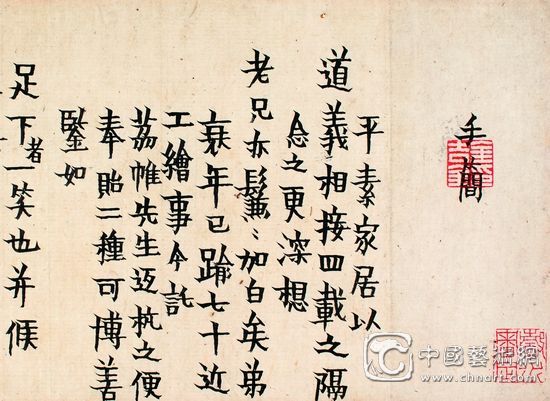 手簡
平素家居以
道義相接四載之隔
念之更深想
老兄亦鬑〻加白矣弟
衰年已踰七十近
工繪事今託
荔帷先生返杭之便
奉貽二種可博善
鑒如
足下者一笑也并候
中國藝術網
www.chnart.com